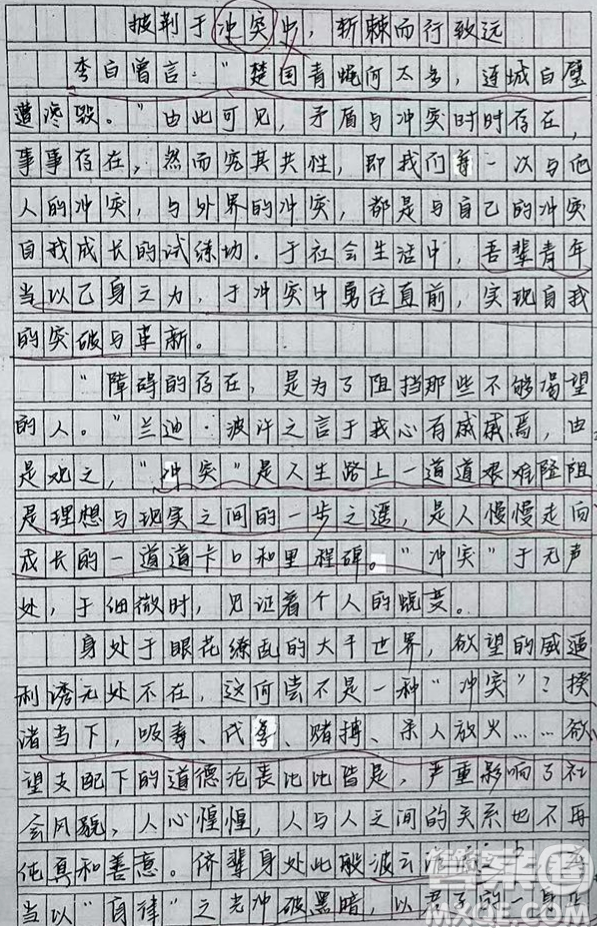 披荆于冲突中，斩棘而行致远
李白曾言："楚国青蝇何太多，连城白璧
遭谗毁。"由此可见，矛盾与冲突时时存在，
事事存在，然而究其共性，即我们每一次与他
人的冲突，与外界的冲突，都是与自己的冲突
自我成长的试练场。于社会生活中，吾辈青年
当以己身之力，于冲突中勇往直前，实现自我
的突破与革新。
"障碍的存在，是为了阻挡那些不够渴望
的人。"兰迪·波许之言于我心有戚戚焉，由
是观之，"冲突"是人生路上一道道艰难险阻
是理想与现实之间的一步之遥，是人慢慢走向
成长的一道道卡口和里程碑。"冲突"于无声
处，于细微时，见证着个人的蜕变。
身处于眼花缭乱的大千世界，欲望的威逼
利诱无处不在，这何尝不是一种"冲突"？揆
诸当下，吸毒、代孕、赌搏、杀人放火……欲
望支配下的道德沦丧比比皆是，严重影响了社
会风貌，人心惶惶，人与人之间的关系也不再
纯真和善意。侪辈身处此般波云
当以"自律"之光冲破黑暗，以君子的一身正
MXQE.COM